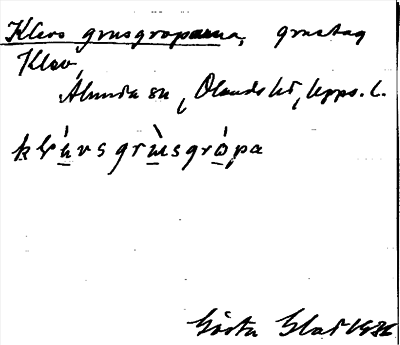 Klevs grusgroparna, grustag
Klev,
Alunda sn, Olands hd, Upps. l.
klèvsgrùsgròpa
Gösta